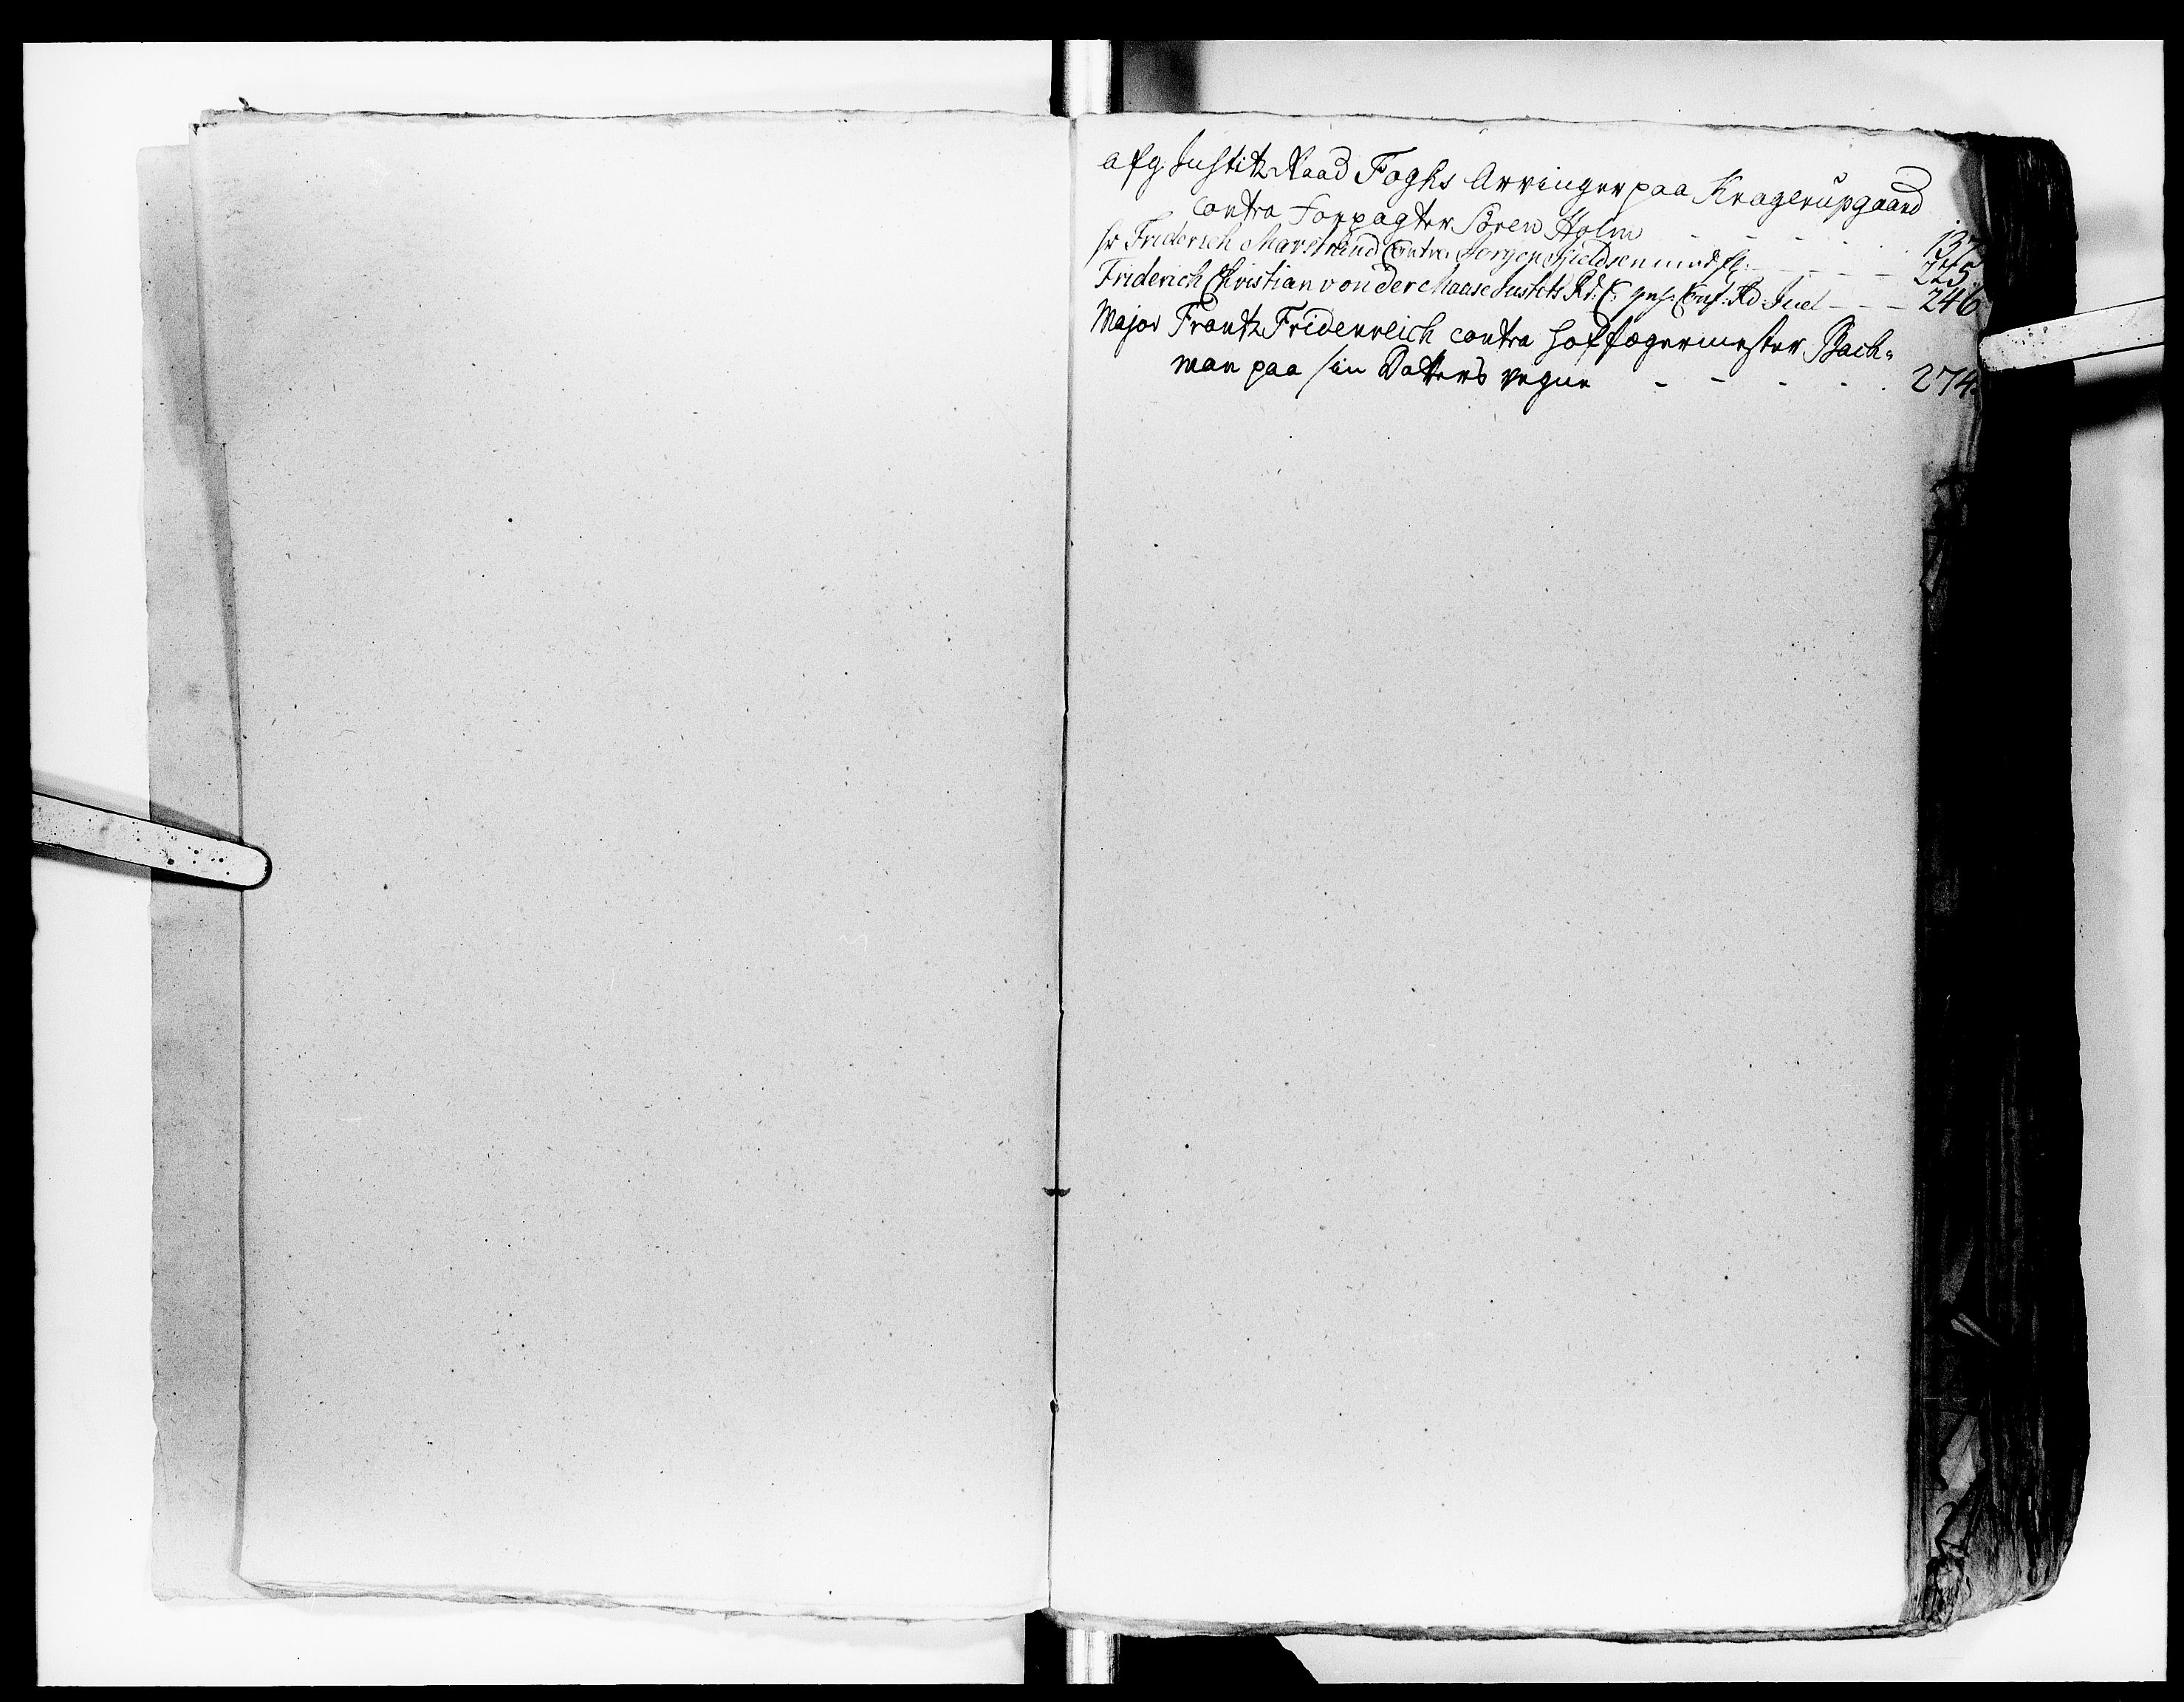 afg Justitz Raad Foghs Arvinger paa Kragerupgaard
contra Forpagter Sören Holm - - - - 137
Sr Friderich Marstrand Contra Jørgen Kieldsen med fl: - - - - 225.
Friderich Christian von der Maase Justits Rd: C: Conf: Rd: Juel - - - 246
Major Frantz Fridenreich contra Hof Jægermester Bach=
man paa sin Datters vegne - - - - . 274.